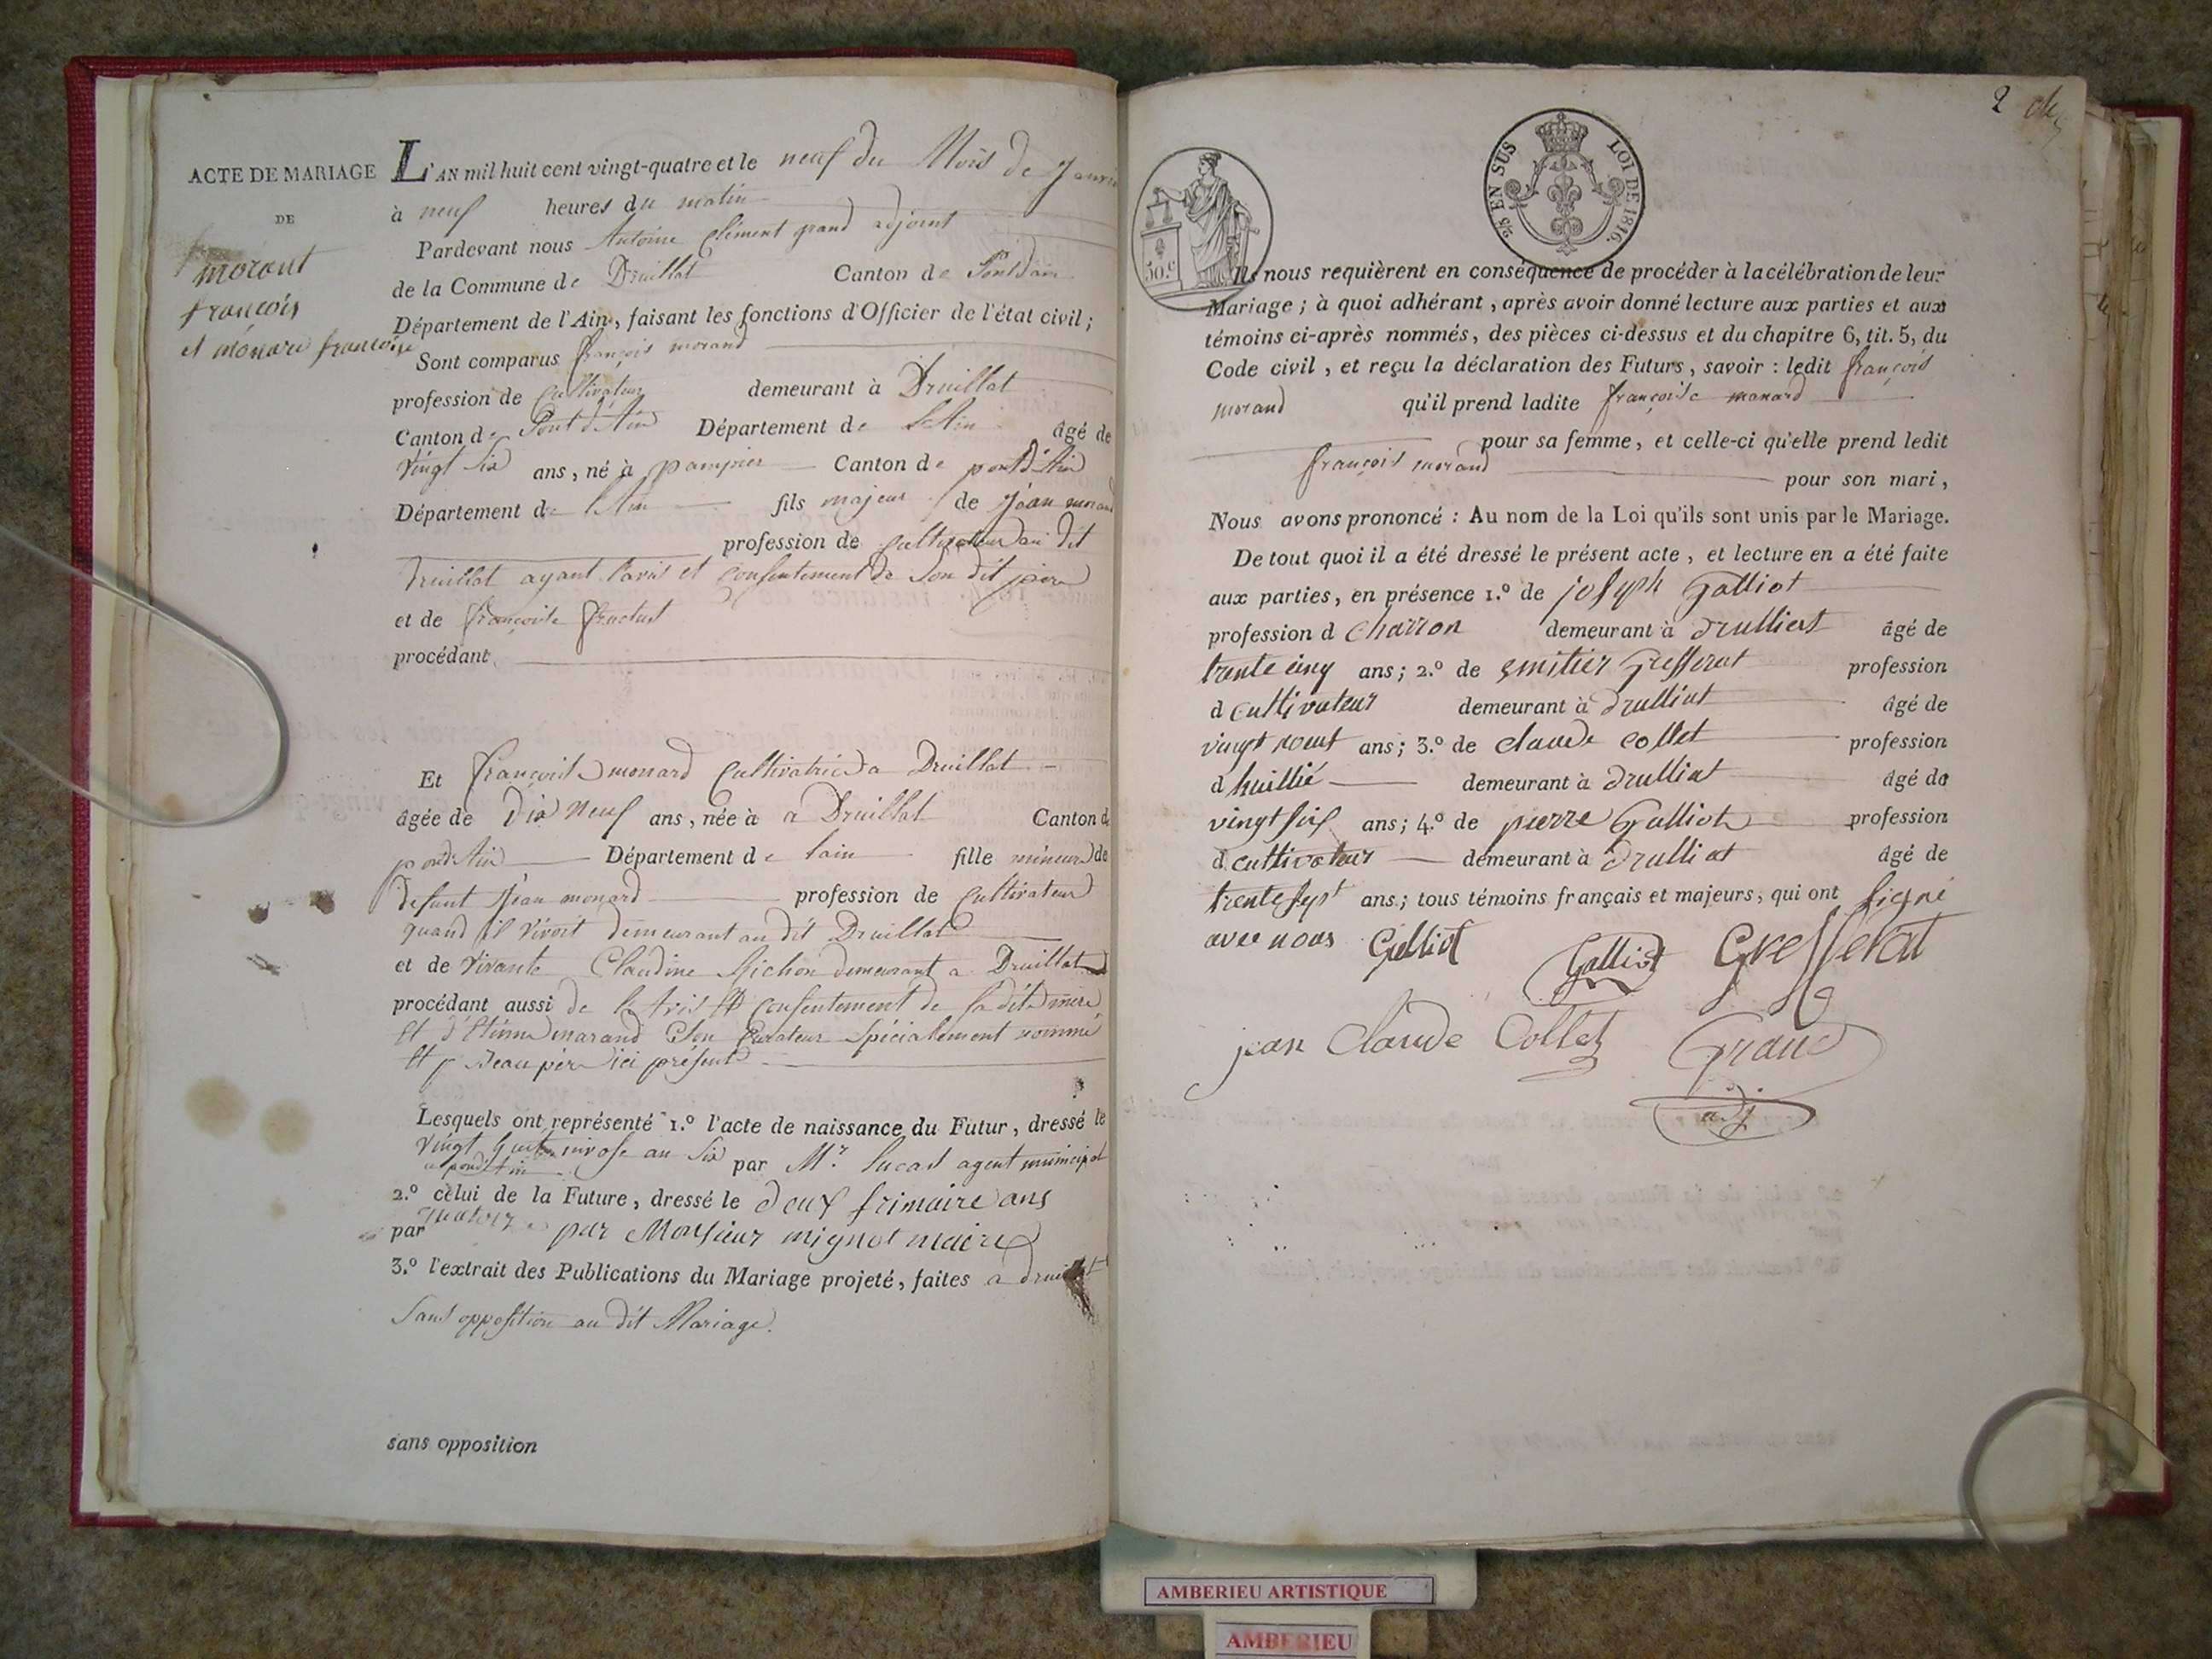 ACTE DE MARIAGE
DE
morant
françois
et monard françoise
L'AN mil huit cent vingt-quatre et le neuf du Mois de Janvie
à neuf heures du matin
Pardevant nous Antoine Clément grand adjoint
de la Commune de Druillat Canton de Pontdain
Département de l'Ain, faisant les fonctions d'Officier de l'état civil;
Sont comparus françois morand
profession de Cultivateur demeurant à Druillat
Canton de Pont d'Ain Département de L'Ain âgé de
vingt six ans, né à Canton de pontd'Ain
Département de l'Ain fils majeur de Jean morand
profession de Cultivateur au dit
Druillat ayant l'avis et Consentement de Son dit père
et de françoise
procédant
Et françoise monard Cultivatrice a Druillat
âgée de Dix Neuf ans, née à a Druillat Canton d
pontd'Ain Département de lain fille mineure de
défunt Jean monard profession de Cultivateur
quand il vivoit demeurant au dit Druillat
et de vivante Claudine Michon demeurant a Druillat
procédant aussi de l'Avis et Consentement de sa dite mère
Et d'Etienne marand Son Curateur Spécialement nommé
Et beau père ici présent
Lesquels ont représenté 1.º l'acte de naissance du Futur, dressé le
vingt huit nivose an Six par M.r Lucas agent municipal
a pontd'ain
2.º celui de la Future, dressé le deux frimaire ans
par quatorze par Monsieur mignot maire
3.º l'extrait des Publications du Mariage projeté, faites a druillat
Sans opposition au dit Mariage.
sans opposition
2
50.c
2/5 EN SUS LOI DE 1816.
Ils nous requièrent en conséquence de procéder à la célébration de leur
Mariage; à quoi adhérant, après avoir donné lecture aux parties et aux
témoins ci-après nommés, des pièces ci-dessus et du chapitre 6, tit. 5, du
Code civil, et reçu la déclaration des Futurs, savoir: ledit françois
morand qu'il prend ladite françoise monard
pour sa femme, et celle-ci qu'elle prend ledit
françois morand pour son mari,
Nous avons prononcé: Au nom de la Loi qu'ils sont unis par le Mariage.
De tout quoi il a été dressé le présent acte, et lecture en a été faite
aux parties, en présence 1.º de joseph Galliot
profession d Charron demeurant à drulliat âgé de
trente cinq ans; 2.º de Gresserat profession
d cultivateur demeurant à drulliat âgé de
vingt neuf ans; 3.º de claude collet profession
d huillié demeurant à drulliat âgé de
vingt six ans; 4.º de pierre Galliot profession
d cultivateur demeurant à drulliat âgé de
trente sept ans; tous témoins français et majeurs, qui ont signé
avec nous Galliot Galliot Gresserat
jean Claude Collet Grand
adj
AMBERIEU ARTISTIQUE
AMBERIEU